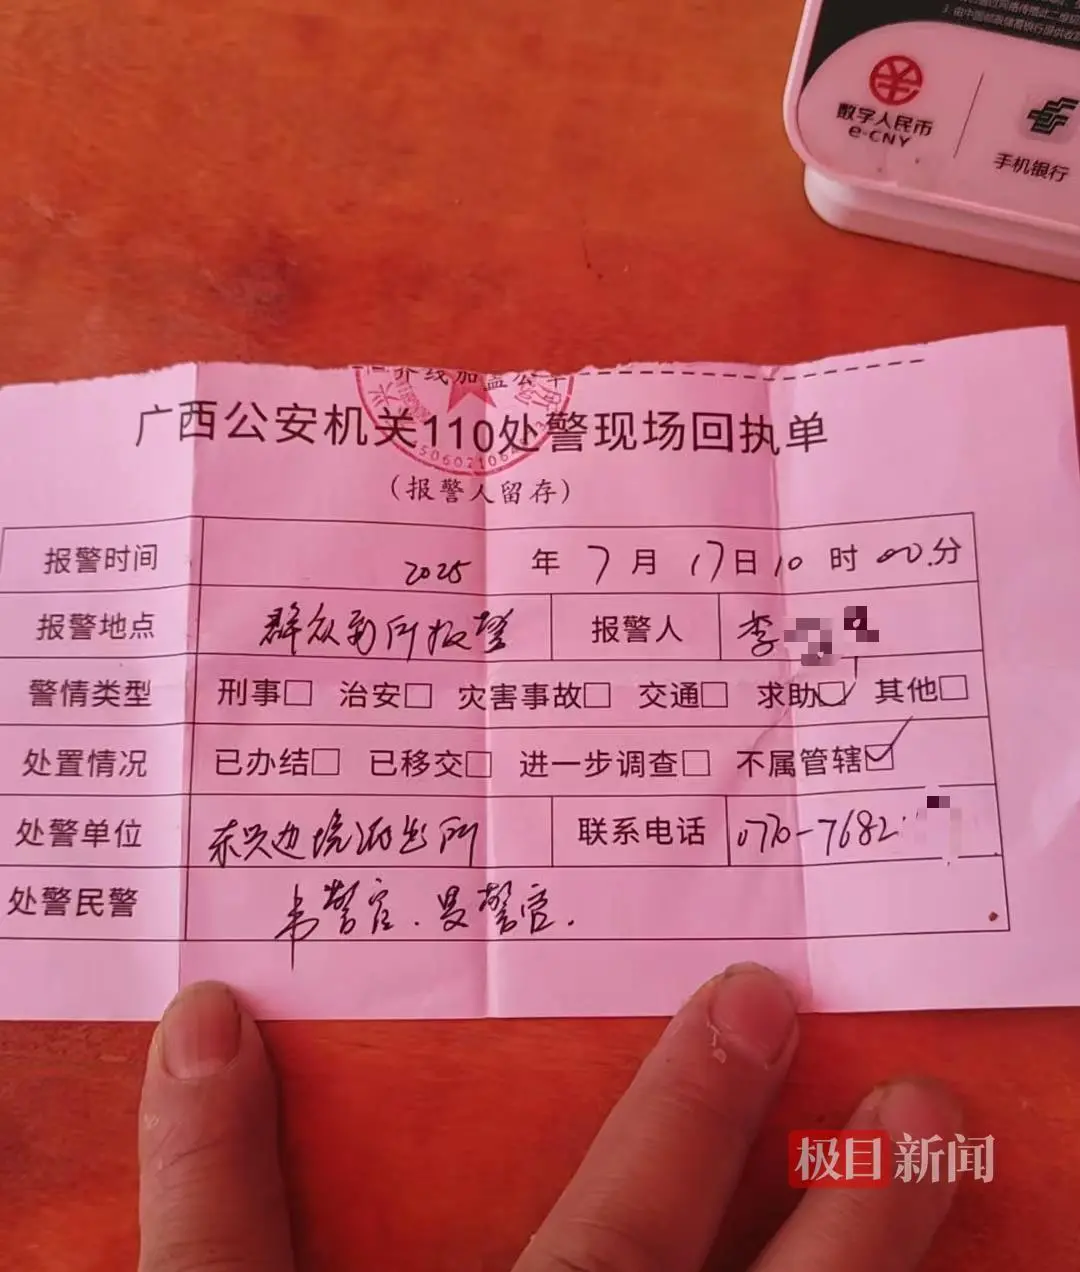 3.由中国邮政储蓄银行提供收款
数字人民币
e-CNY
手机银行
界线加盖公章
广西公安机关110处警现场回执单
（报警人留存）
报警时间 2025 年 7 月 17 日 10 时 00 分
报警地点 群众到所报警 报警人 李
警情类型 刑事□ 治安□ 灾害事故□ 交通□ 求助☑ 其他□
处置情况 已办结□ 已移交□ 进一步调查□ 不属管辖☑
处警单位 东兴边境派出所 联系电话 0770-7682
处警民警 韦警官.
极目新闻